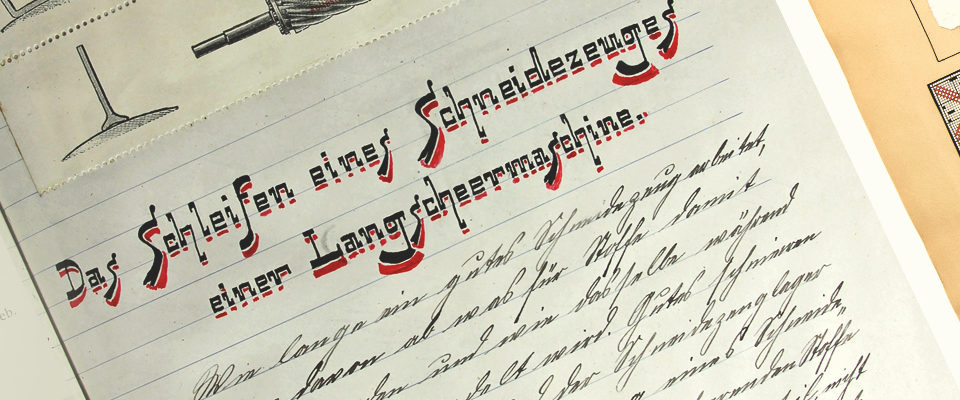 Das Schleifen eines Schneidezeuges
einer Langscheermaschine.
Wie lange ein gutes Schneidezeug arbeitet,
davon ab was für Stoffe damit
den und wie dasselbe während
delt wird. Gutes Schmieren
der Schneidezeuglager
eines Schneide-
den Stoffe
nicht
eb.